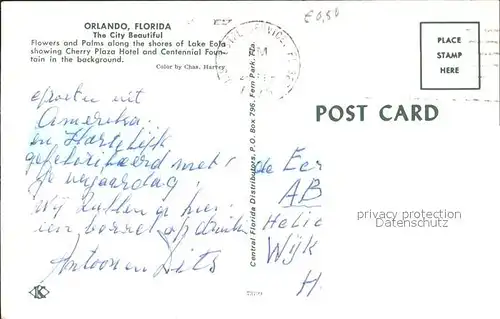 ORLANDO, FLORIDA
The City Beautiful
Flowers and Palms along the shores of Lake Eola
showing Cherry Plaza Hotel and Centennial Foun-
tain in the background.
Color by Chas. Harvey
€0,50
PLACE
STAMP
HERE
POST CARD
Groeten uit
Amerika.
en Hartelijk
gefeliciteerd met
je verjaardag!
Wij zullen er hier
een borrel op drinken
Antoon en Dits
Central Florida Distributors, P. O. Box 796, Fern Park, Fla.
de Eer
AB
Helic
Wijk
H.
privacy protection
Datenschutz
K